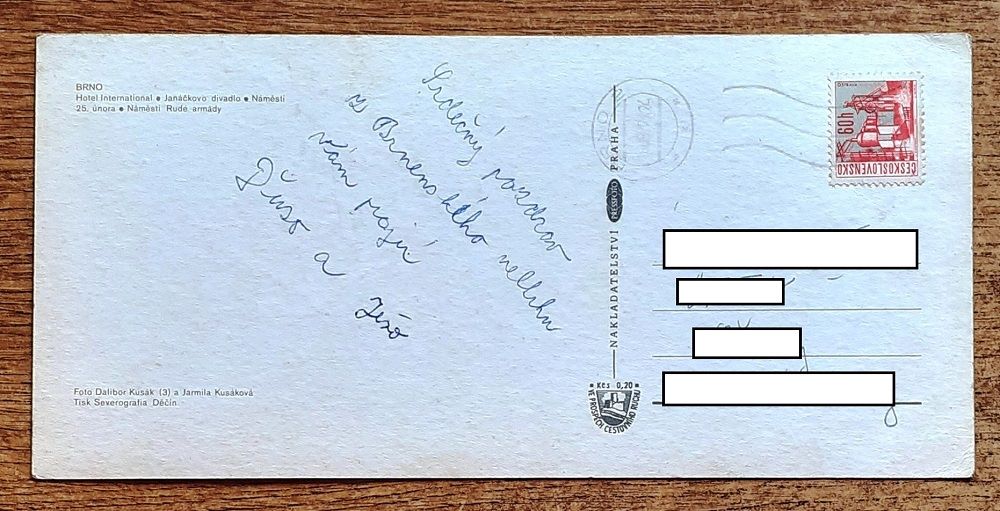 BRNO
Hotel International • Janáčkovo divadlo • Náměstí
25. února • Náměstí Rudé armády
Srdečný pozdrav
z Brnenského
vám prajú
Ďuso a
Foto Dalibor Kusák (3) a Jarmila Kusáková
Tisk Severografia Děčín
NAKLADATELSTVÍ PRESSFOTO PRAHA
Kčs 0,20
VE PROSPĚCH CESTOVNÍHO RUCHU
60h
ČESKOSLOVENSKO